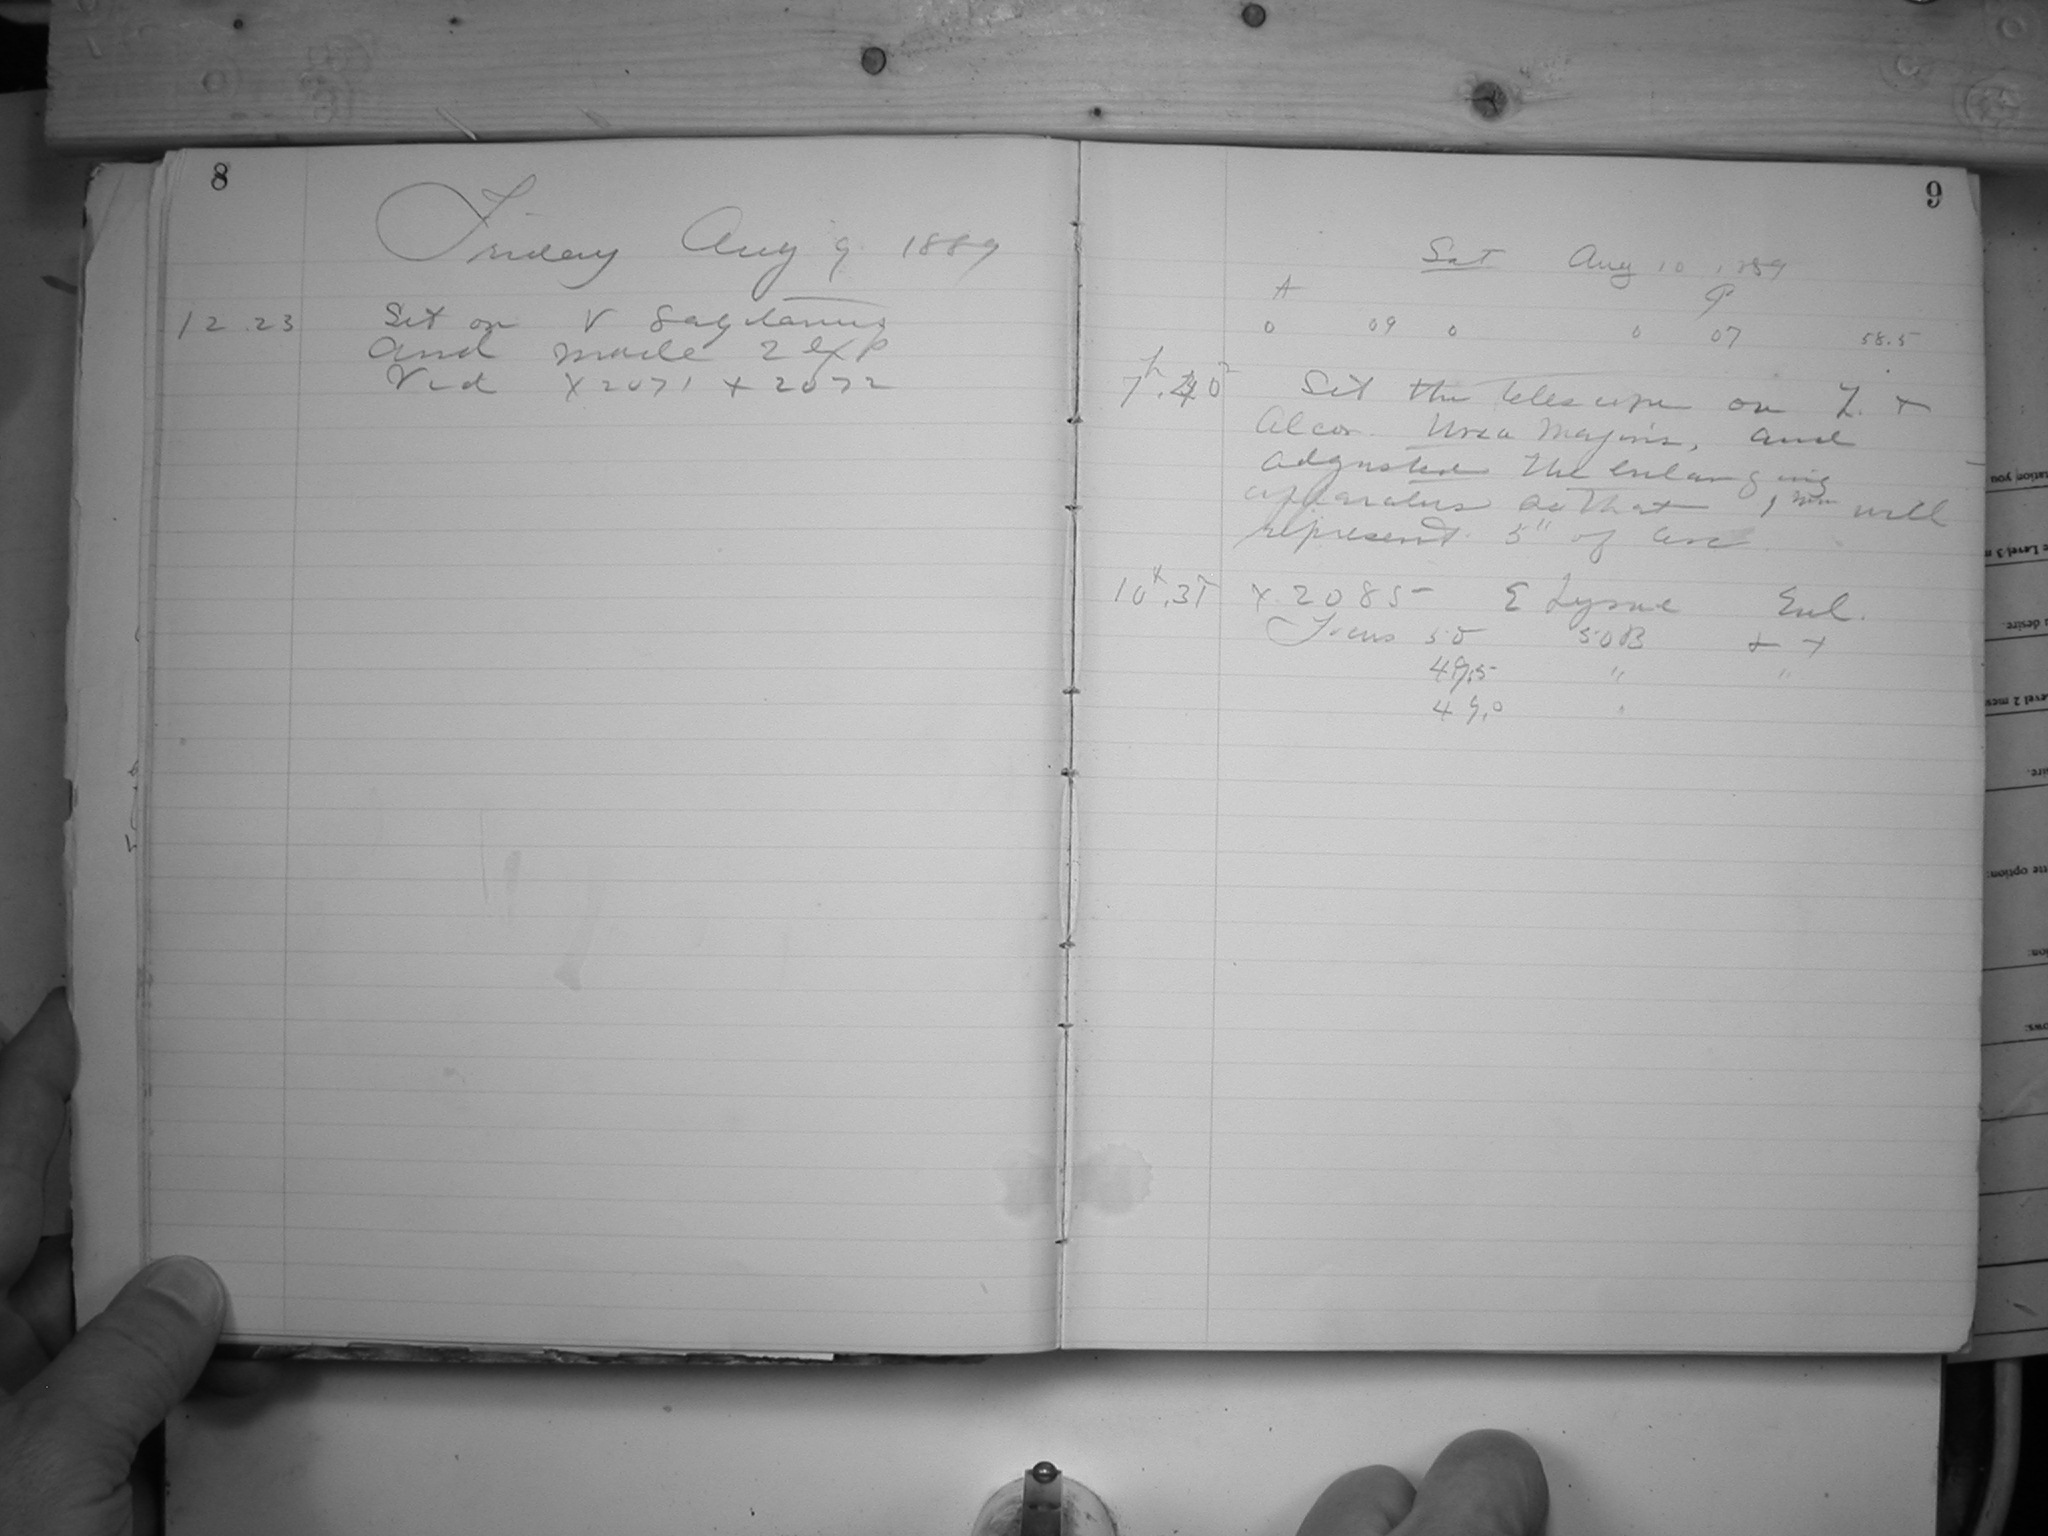 8
Friday Aug 9. 1889
12.23 Set on V Sagittarius
and made 2 exp
Vid X2071 + 2072
9
Sat Aug 10 1889
A P
0 09 0 0 07 58.5
Set the telescope on Z. +
Alcor. Ursa Majoris, and
adjusted the enlarging
apparatus so that 1 mm will
represent 5" of arc
X 2085 Σ Lyrae Enl.
Focus 50 50B + +
49.5 " "
49.0 "
tation you
e Level 3 m
u desire.
evel 2 mes
ire.
tte option:
ion:
ows: